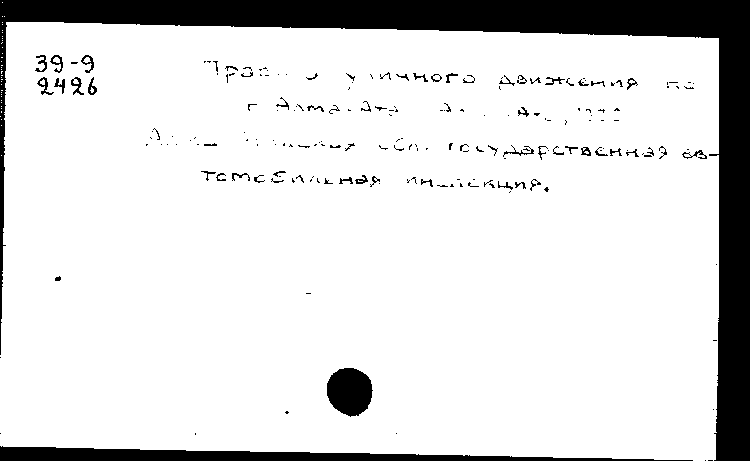 39-9
2426
Правила уличного движения по
г. Алма-Ата
Алма-Атинская обл. государственная ав-
томобильная инспекция.